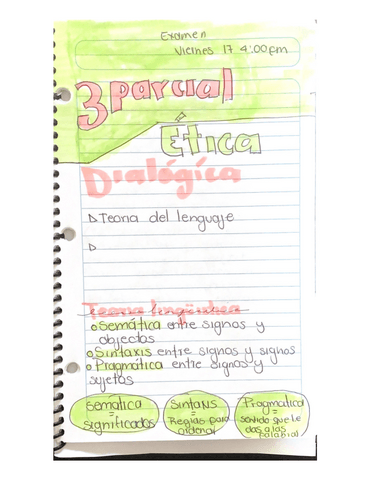 Examen
Viernes 17 4:00pm
3 parcial
Ética
Dialógica
Teoria del lenguaje
Teoria lengüistica
Semática entre signos y
objectos
Sintaxis entre signos y signos
Pragmática entre signos y
sujetos
Semática
=
significados
Sintaxis
=
Reglas para
ordenar
Pragmatica
=
sentido que le
das a las
palabras